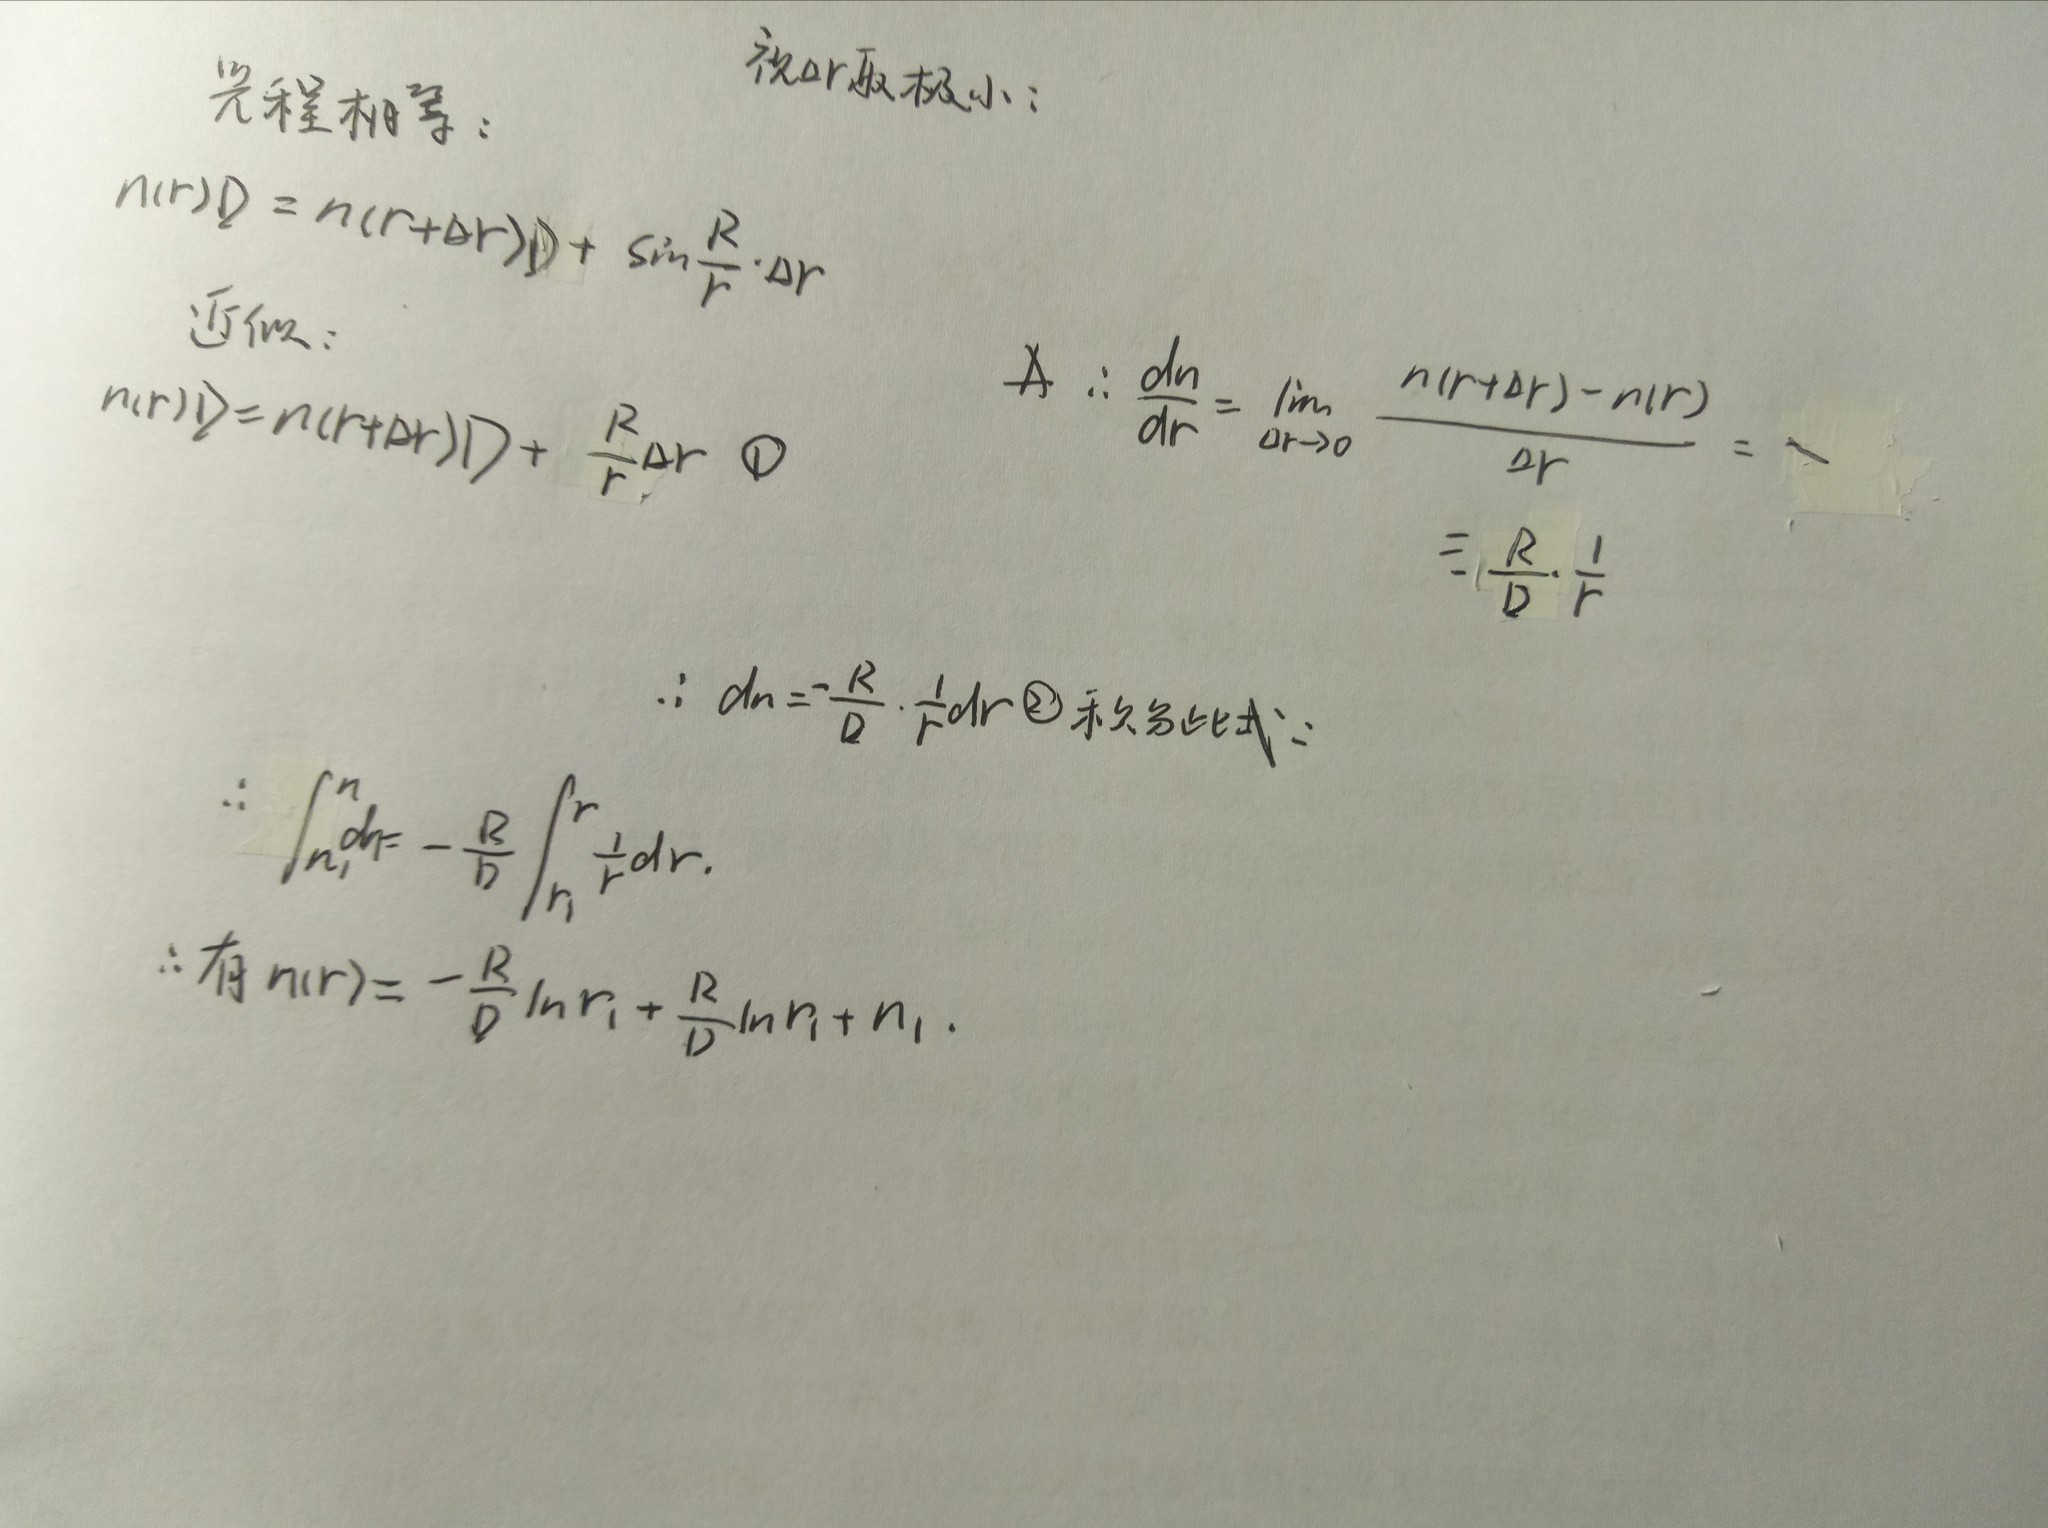 光程相等:
视Δr取极小:
n(r)D = n(r+Δr)D + sin R/r · Δr
近似:
n(r)D = n(r+Δr)D + R/r Δr ①
∴ dn/dr = lim Δr→0 (n(r+Δr) - n(r))/Δr =
= R/D · 1/r
∴ dn = - R/D · 1/r dr ② 积分此式:
∴ ∫_{n₁}^{n} dn = - R/D ∫_{r₁}^{r} 1/r dr.
∴ 有 n(r) = - R/D ln r₁ + R/D ln r₁ + n₁ .